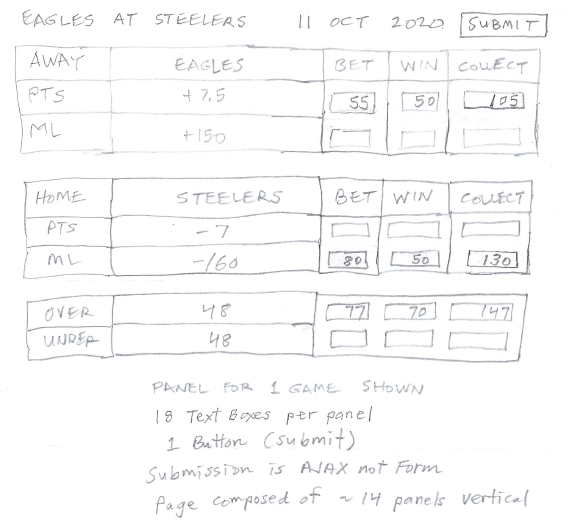 EAGLES AT STEELERS 11 OCT 2020 SUBMIT
AWAY EAGLES BET WIN COLLECT
PTS +7.5 55 50 105
ML +150
HOME STEELERS BET WIN COLLECT
PTS -7
ML -160 80 50 130
OVER 48 77 70 147
UNDER 48
PANEL FOR 1 GAME SHOWN
18 Text Boxes per panel
1 Button (submit)
Submission is AJAX not Form
Page composed of ~ 14 panels vertical